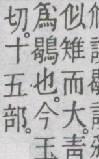 似雉而大。青
爲鶡也。今玉
切。十五部。